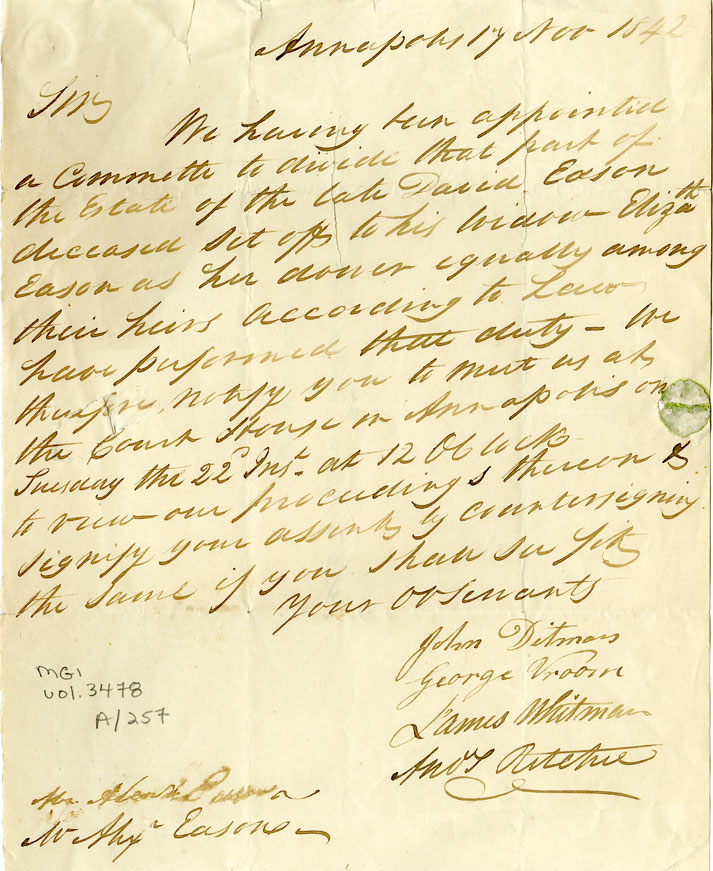 Annapolis 17 Nov 1842
Sir,
We having been appointed
a Committe to divide that part of
the Estate of the late David Eason
deceased set off to his Widow Eliz.ath
Eason as her dower equally among
their heirs according to Law
have performed that duty – We
therefore, notify you to meet us at
the Court House in Annapolis on
Tuesday the 22d Inst. at 12 OClock
to view our proceedings thereon &
signify your assent by countersigning
the same if you shall see fit
Your Ob Servants
John Ditmars
George Vroom
James Whitman
Andw Ritchie
MG1
vol. 3478
A/257
Mr
Mr Alexr Eason